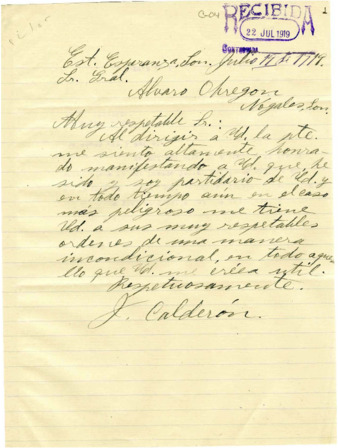 RECIBIDA
22 JUL 1919
Est. Esperanza, Son., Julio de 1919.
Sr. Gral.
Alvaro Obregon
Nogales, Son.
Muy respetable Sr.:
Al dirigir a Ud. la pte.
me siento altamente honra-
do manifestando a Ud. que, he
sido y soy partidario de Ud. y
en todo tiempo aun en el caso
más peligroso me tiene
Ud. a sus muy respetables
ordenes de una manera
incondicional, en todo aque-
llo que Ud. me créea util.
Respetuosamente.
J. Calderón.